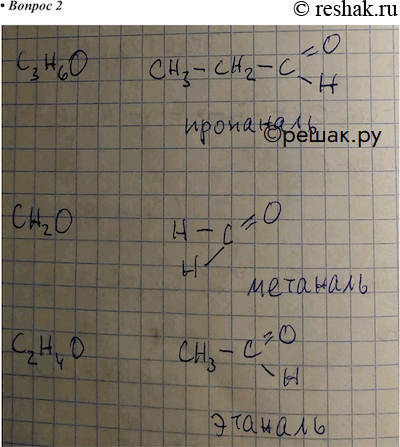 • Вопрос 2
© reshak.ru
C₃H₆O CH₃ – CH₂ – C = O – H
пропаналь
©решак.ру
CH₂O H – C = O
H
метаналь
C₂H₄O CH₃ – C = O – H
этаналь